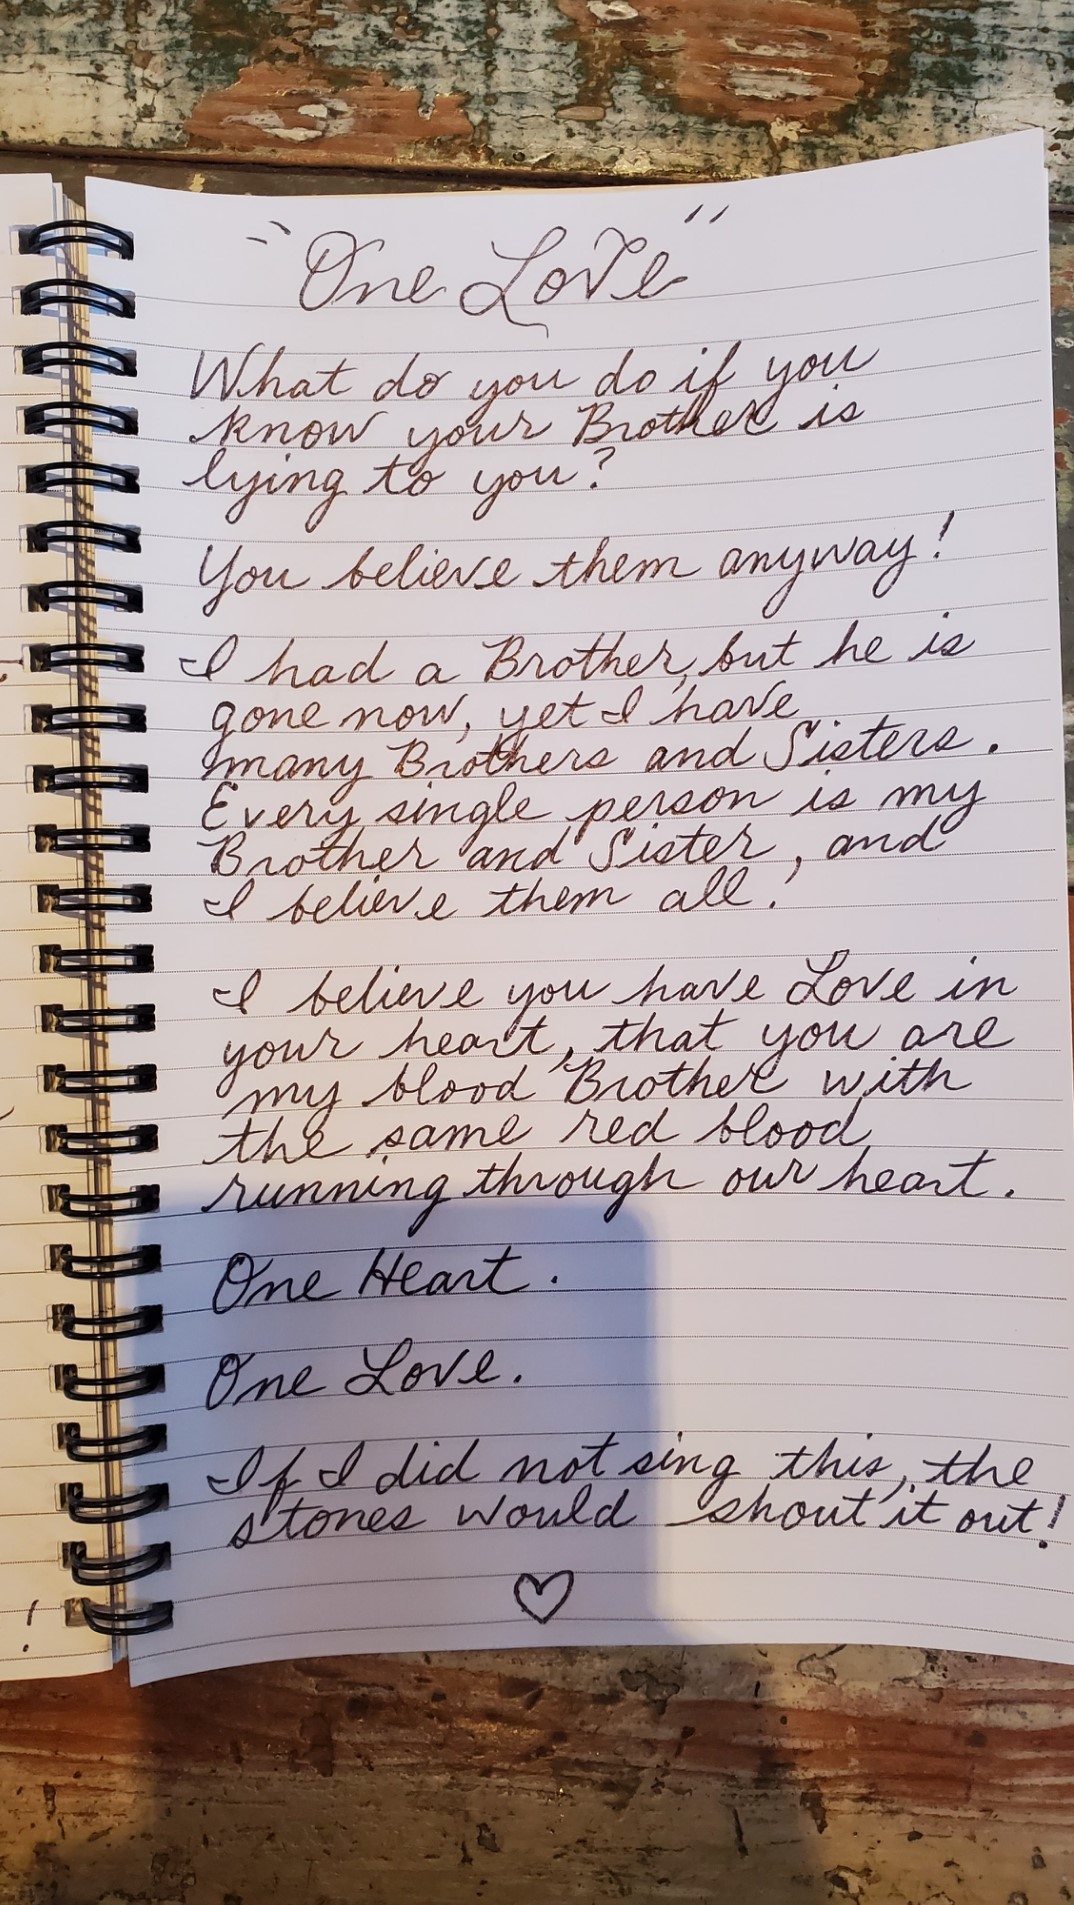 "One Love"
What do you do if you
know your Brother is
lying to you?
You believe them anyway!
I had a Brother, but he is
gone now, yet I have
many Brothers and Sisters.
Every single person is my
Brother and Sister, and
I believe them all!
I believe you have Love in
your heart, that you are
my blood Brother with
the same red blood
running through our heart.
One Heart.
One Love.
If I did not sing this, the
stones would shout it out!